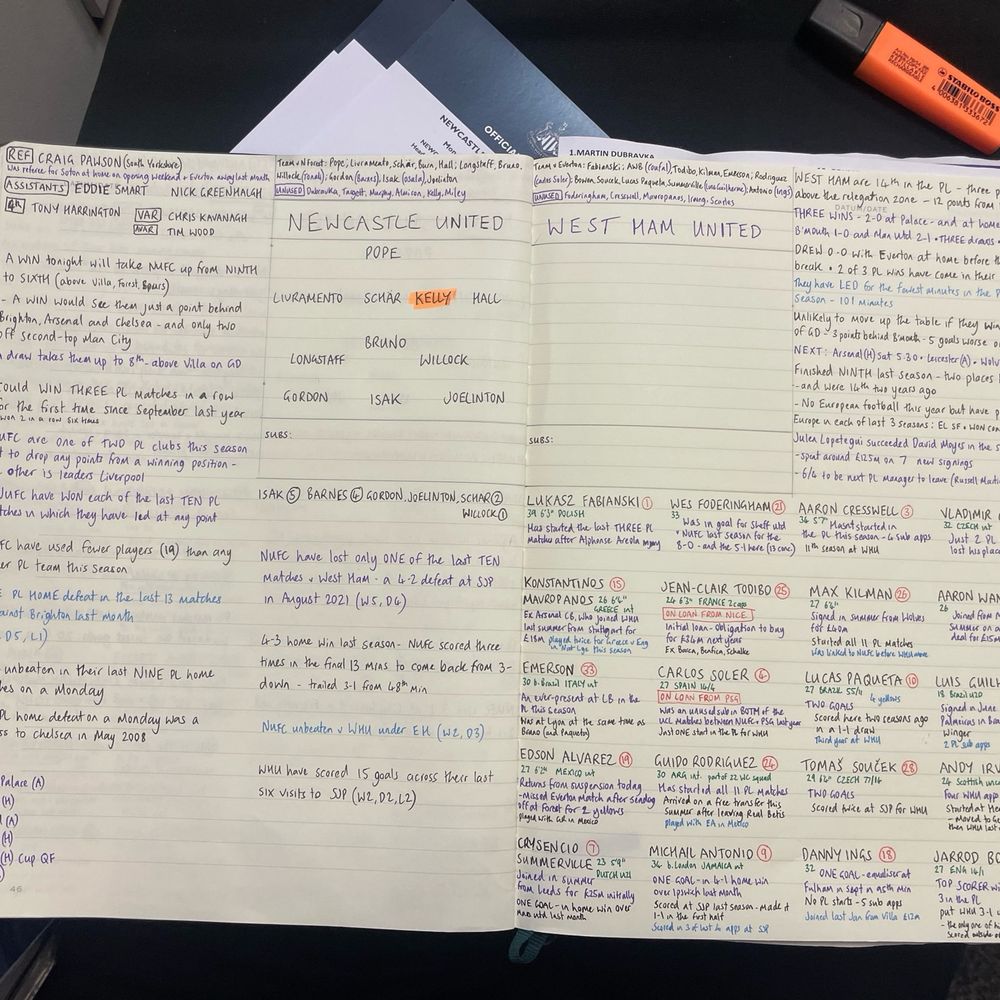 NEWCASTLE
OFFICIAL
NEWCASTL
STABILO BOSS
1.MARTIN DUBRAVKA
REF CRAIG PAWSON (South Yorkshire)
Was referee for Soton at home on opening weekend + Everton away last month
ASSISTANTS EDDIE SMART NICK GREENHALGH
4th TONY HARRINGTON VAR CHRIS KAVANAGH
AVAR TIM WOOD
A WIN tonight will take NUFC up from NINTH
to SIXTH (above Villa, Forest, Spurs)
- A WIN would see them just a point behind
Brighton, Arsenal and Chelsea - and only two
off second-top Man City
draw takes them up to 8th - above Villa on GD
could WIN THREE PL Matches in a row
for the first time since September last year
won 2 in a row six times
NUFC are one of TWO PL clubs this season
to drop any points from a winning position -
other is leaders Liverpool
NUFC have WON each of the last TEN PL
matches in which they have led at any point
have used fewer players (19) than any
PL team this season
PL HOME defeat in the last 13 matches
against Brighton last month
D5, L1)
unbeaten in their last NINE PL home
on a Monday
PL home defeat on a Monday was a
to Chelsea in May 2008
Palace (A)
(H)
(A)
(H)
(H) Cup QF
46
Team v N Forest: Pope; Livramento, Schär, Burn, Hall; Longstaff, Bruno,
Willock (Tonali); Gordon (Barnes), Isak (Osula), Joelinton
UNUSED Dubravka, Targett, Murphy, Almiron, Kelly, Miley
NEWCASTLE UNITED
POPE
LIVRAMENTO SCHÄR KELLY HALL
BRUNO
LONGSTAFF WILLOCK
GORDON ISAK JOELINTON
SUBS:
ISAK 5 BARNES 4 GORDON, JOELINTON, SCHAR 2
WILLOCK 1
NUFC have lost only ONE of the last TEN
Matches v West Ham - a 4-2 defeat at SJP
in August 2021 (W5, D4)
4-3 home win last season - NUFC scored three
times in the final 13 mins to come back from 3-
down - trailed 3-1 from 48th Min
NUFC unbeaten v WHU under EH (W2, D3)
WHU have scored 15 goals across their last
six visits to SJP (W2, D2, L2)
Team v Everton: Fabianski; AWB (Coufal), Todibo, Kilman, Emerson; Rodriguez
(Carlos Soler); Bowen, Soucek, Lucas Paqueta, Summerville (Luis Guilherme); Antonio (Ings)
UNUSED Foderingham, Cresswell, Mavropanos, Irving, Scarles
WEST HAM UNITED
SUBS:
DATUM/DATE
WEST HAM are 14th in the PL - three
above the relegation zone - 12 points from
THREE WINS - 2-0 at Palace - and at home
B'mouth 1-0 and Man Utd 2-1 • THREE draws
DREW 0-0 with Everton at home before
break • 2 of 3 PL wins have come in their
They have LED for the fewest minutes in the P
Season - 101 minutes
Unlikely to move up the table if they win
of GD - 3 points behind B'mouth - 5 goals worse o
NEXT: Arsenal (H) Sat 5.30 • Leicester (A) • Wolv
Finished NINTH last season - two places
- and were 14th two years ago
- No European football this year but have
Europe in each of last 3 seasons: EL SF • WON
Julen Lopetegui succeeded David Moyes in the s
- spent around £125m on 7 new signings
- 6/4 to be next PL manager to leave (Russell Marti
LUKASZ FABIANSKI 1
39 6'3" POLISH
Has started the last THREE PL
Matches after Alphonse Areola injury
WES FODERINGHAM 21
33
Was in goal for Sheff Utd
v NUFC last season for the
8-0 - and the 5-1 here (13 conc)
AARON CRESSWELL 3
34 5'7" Hasn't started in
the PL this season - 4 sub apps
11th season at WHU
VLADIMIR
32 CZECH int
Just 2 PL
lost his place
KONSTANTINOS 15
MAVROPANOS 26 6'4"
GREECE int
Ex Arsenal CB, who joined WHU
last summer from Stuttgart for
£19m played twice for Greece v Eng
in Nat Lge this season
JEAN-CLAIR TODIBO 25
24 6'3" FRANCE 2caps
ON LOAN FROM NICE
Initial loan - obligation to buy
for £34m next year
Ex Barca, Benfica, Schalke
MAX KILMAN 26
27 6'4"
Signed in Summer from Wolves
for £40m
Started all 11 PL matches
Was linked to NUFC before WHU move
AARON WAN
26
Joined from
Summer on a
deal for £15m
EMERSON 33
30 b.Brazil ITALY int
An ever-present at LB in the
PL this season
Was at Lyon at the same time as
Bruno (and Paqueta)
CARLOS SOLER 4
27 SPAIN 14/4
ON LOAN FROM PSG
Was an unused sub in BOTH of the
UCL matches between NUFC + PSG last year
Just ONE start in the PL for WHU
LUCAS PAQUETA 10
27 BRAZIL 55/11 4 yellows
TWO GOALS
Scored here two seasons ago
in a 1-1 draw
Third year at WHU
LUIS GUILH
18 Brazil U20
Signed in June
Palmeiras in Bra
Winger
2 PL sub apps
EDSON ALVAREZ 19
27 6'2" MEXICO int
Returns from suspension today
- missed Everton match after sending
off at Forest for 2 yellows
played with G.R in Mexico
GUIDO RODRIGUEZ 24
30 ARG int. part of 22 WC squad
Has started all 11 PL Matches
Arrived on a free transfer this
Summer after leaving Real Betis
played with EA in Mexico
TOMAŠ SOUČEK 28
29 6'4" CZECH 77/14
TWO GOALS
Scored twice at SJP for WHU
ANDY IRV
24 Scottish unc
Four WHU apps
Started at
- moved to
then WHU last
CRYSENCIO 7
SUMMERVILLE 23 5'9"
DUTCH U21
Joined in summer
from Leeds for £25m initially
ONE GOAL - in home win over
Man Utd last month
MICHAIL ANTONIO 9
34 b.London JAMAICA int
ONE GOAL - in 4-1 home win
over Ipswich last month
Scored at SJP last season - made it
1-1 in the first half
Scored in 3 of last 4 apps at SJP
DANNY INGS 18
32 ONE GOAL - equaliser at
Fulham in Sept in 95th min
No PL starts - 5 sub apps
Joined last Jan from Villa £12m
JARROD BO
27 ENG 14/1
TOP SCORER wi
3 in the PL
put WHU 3-1
- the only one of
scored outside o